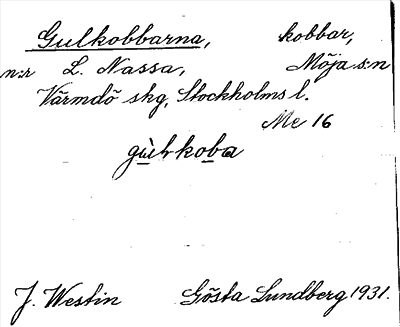 Gulkobbarna, kobbar,
n:r L. Nassa, Möja s:n
Värmdö skg, Stockholms l.
Me 16
gùlkoba
J. Westin Gösta Lundberg 1931.